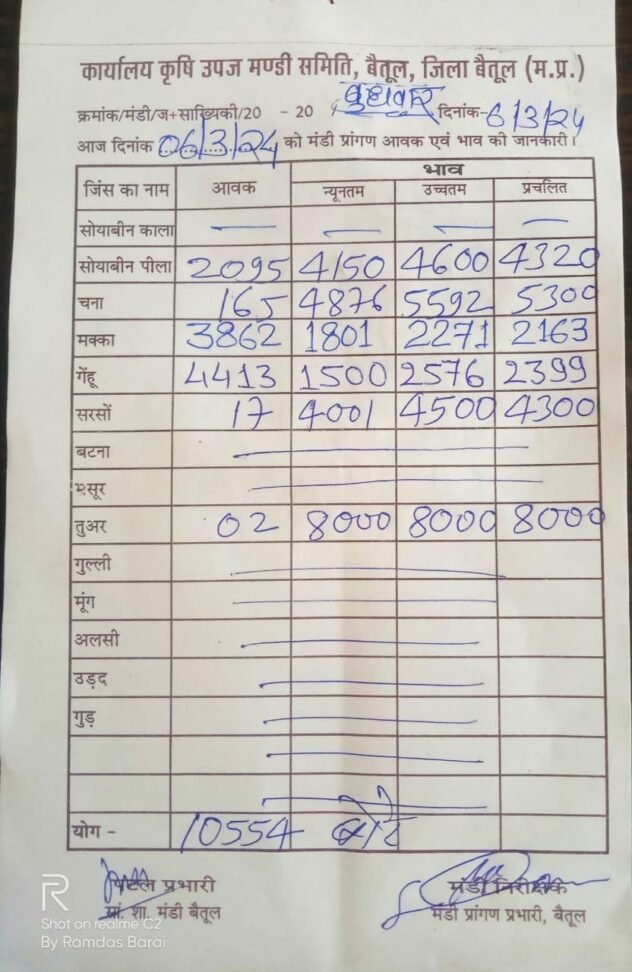 कार्यालय कृषि उपज मण्डी समिति, बैतूल, जिला बैतूल (म.प्र.)
क्रमांक/मंडी/ज+सांख्यिकी/20 - 20 बुधवार दिनांक-6/3/24
आज दिनांक 06/3/24 को मंडी प्रांगण आवक एवं भाव की जानकारी।
भाव
जिंस का नाम आवक न्यूनतम उच्चतम प्रचलित
सोयाबीन काला — — — —
सोयाबीन पीला 2095 4150 4600 4320
चना 165 4876 5592 5300
मक्का 3862 1801 2271 2163
गेंहू 4413 1500 2576 2399
सरसों 17 4001 4500 4300
बटना
मसूर
तुअर 02 8000 8000 8000
गुल्ली
मूंग
अलसी
उड़द
गुड़
योग - 10554 बोरे
प्रभारी मंडी निरीक्षक
प्रां. शा. मंडी बैतूल मंडी प्रांगण प्रभारी, बैतूल
R
Shot on realme C2
By Ramdas Barai